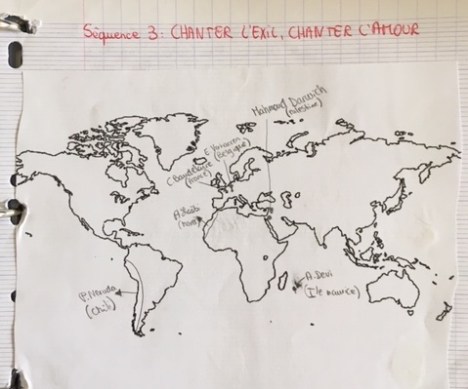 Séquence 3 : CHANTER L'EXIL, CHANTER L'AMOUR
Mahmoud Darwich
(Palestine)
E. Verhaeren
(Belgique)
C. Baudelaire
(France)
(Maroc)
A. Devi
(Île maurice)
P. Neruda
(Chili)